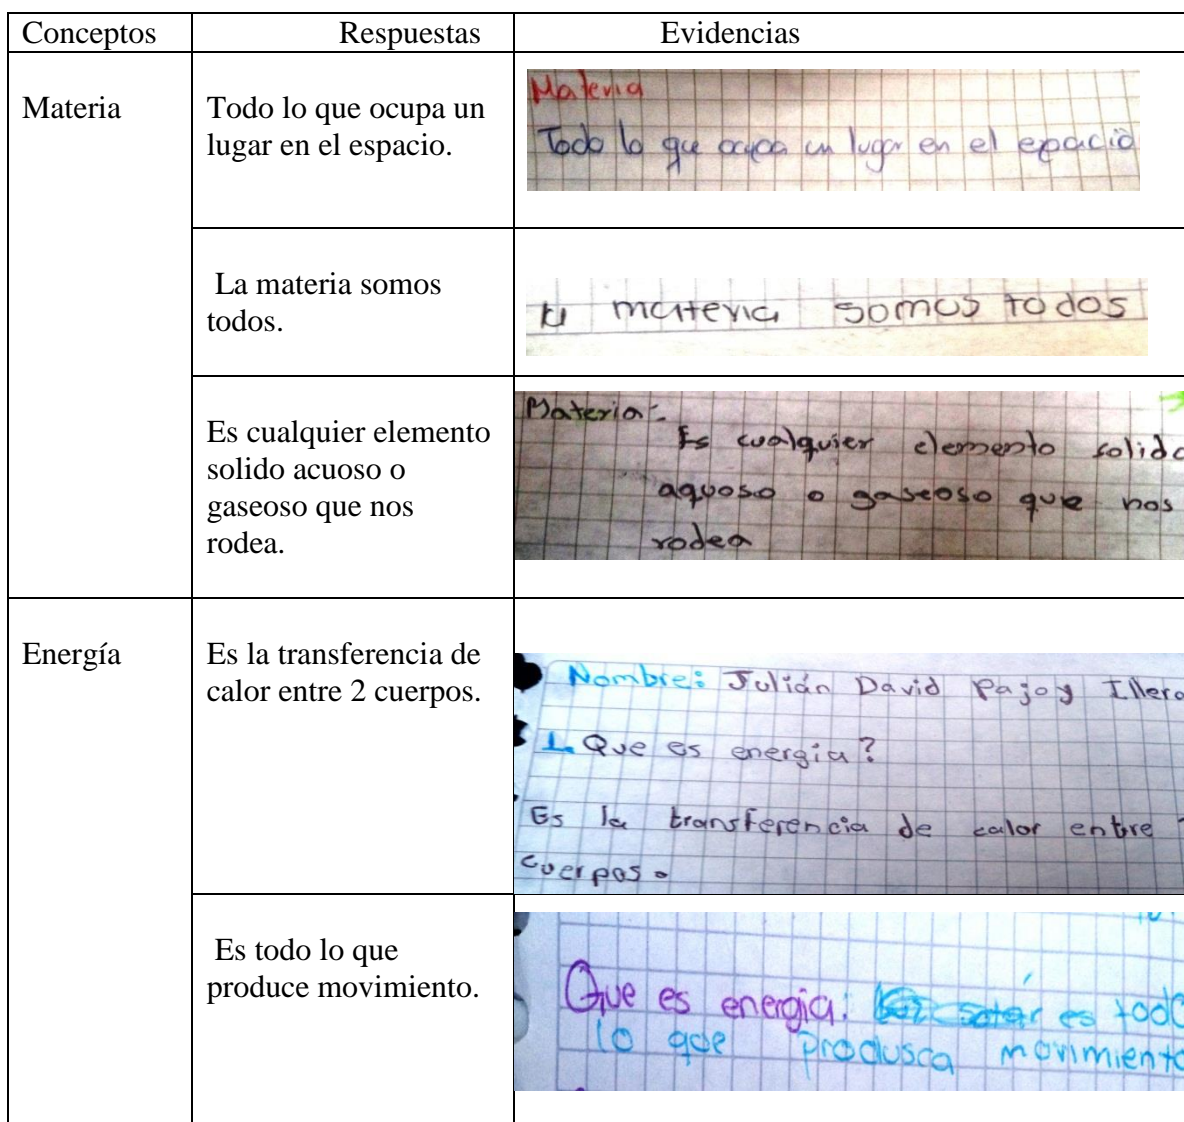 Conceptos Respuestas Evidencias
Materia
Todo lo que ocupa un
lugar en el espacio.
Materia
Todo lo que ocupa un lugar en el epacio
La materia somos
todos.
materia somos todos
Es cualquier elemento
solido acuoso o
gaseoso que nos
rodea.
Materia:-
Es cualquier elemento solido
aquoso o gaseoso que nos
rodea
Energía
Es la transferencia de
calor entre 2 cuerpos.
Nombre: Julián David Pajoy Illera
1. Que es energia?
Es la transferencia de calor entre
cuerpos.
Es todo lo que
produce movimiento.
Que es energia: es todo
lo que produsca movimiento